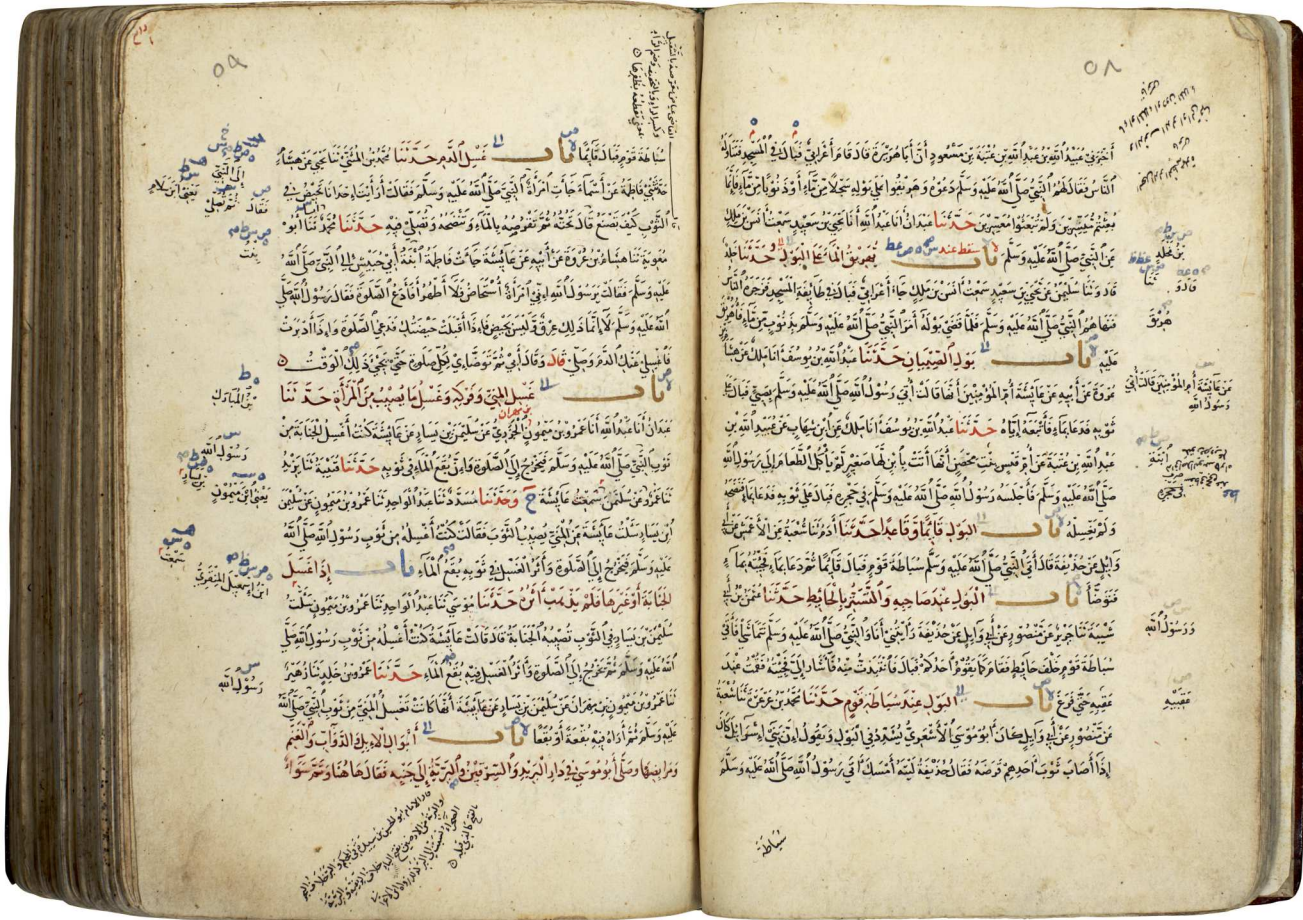 ٥٨
أخبرني عبيد الله بن عبد الله بن عتبة بن مسعود أن أبا هريرة قال قام أعرابي فبال في المسجد فتناوله
الناس فقال لهم النبي صلى الله عليه وسلم دعوه وهريقوا على بوله سجلا من ماء أو ذنوبا من ماء فإنما
بعثتم ميسرين ولم تبعثوا معسرين حدثنا عبدان انا عبد الله انا يحيى بن سعيد سمعت أنس بن ملك
عن النبي صلى الله عليه وسلم باب يهريق الماء على البول وحدثنا خلد
قال وثنا سليمن عن يحيى بن سعيد سمعت أنس بن ملك جاء أعرابي فبال في طايفة المسجد فزجره الناس
فنهاهم النبي صلى الله عليه وسلم فلما قضى بوله أمر النبي صلى الله عليه وسلم بذنوب من ماء فأهريق
عليه باب بول الصبيان حدثنا عبد الله بن يوسف انا ملك عن هشام
عروة عن أبيه عن عايشة أم المؤمنين أنها قالت أتي رسول الله صلى الله عليه وسلم بصبي فبال على
ثوبه فدعا بماء فأتبعه إياه حدثنا عبد الله بن يوسف انا ملك عن ابن شهاب عن عبيد الله بن
عبد الله بن عتبة عن أم قيس بنت محصن أنها أتت بابن لها صغير لم يأكل الطعام إلى رسول الله
صلى الله عليه وسلم فأجلسه رسول الله صلى الله عليه وسلم في حجره فبال على ثوبه فدعا بماء فنضحه
ولم يغسله باب البول قايما وقاعدا حدثنا آدم ثنا شعبة عن الأعمش عن أبي
وايل عن حذيفة قال أتى النبي صلى الله عليه وسلم سباطة قوم فبال قايما ثم دعا بماء فجئته بماء
فتوضأ باب البول عند صاحبه والتستر بالحايط حدثنا عثمن بن أبي
شيبة ثنا جرير عن منصور عن أبي وايل عن حذيفة قال رأيتني أنا والنبي صلى الله عليه وسلم نتماشى فأتى
سباطة قوم خلف حايط فقام كما يقوم أحدكم فبال فانتبذت منه فأشار إلي فجئته فقمت عند
عقبه حتى فرغ باب البول عند سباطة قوم حدثنا محمد بن عرعرة ثنا شعبة
عن منصور عن أبي وايل كان أبو موسى الأشعري يشدد في البول ويقول إن بني إسرائل كان
إذا أصاب ثوب أحدهم قرضه فقال حذيفة ليته أمسك أتى رسول الله صلى الله عليه وسلم
سباطة
بن مخلد
هريق
عن عائشة أم المؤمنين قالت أتي
رسول الله
ابنة
في حجره
ورسول الله
عقبيه
٥٩
سباطة قوم فبال قايما باب غسل الدم حدثنا محمد بن المثنى ثنا يحيى عن هشام
حدثتني فاطمة عن أسماء جاءت امرأة النبي صلى الله عليه وسلم فقالت أرأيت إحدانا تحيض في
الثوب كيف تصنع قال تحته ثم تقرصه بالماء وتنضحه وتصلي فيه حدثنا محمد ثنا أبو
معوية ثنا هشام بن عروة عن أبيه عن عايشة جاءت فاطمة ابنة أبي حبيش إلى النبي صلى الله
عليه وسلم فقالت يرسول الله إني امرأة أستحاض فلا أطهر أفأدع الصلوة فقال رسول الله صلى
الله عليه وسلم لا إنما ذلك عرق وليس بحيض فإذا أقبلت حيضتك فدعي الصلوة وإذا أدبرت
فاغسلي عنك الدم وصلي قال وقال أبي ثم توضئي لكل صلوة حتى يجيء ذلك الوقت
باب غسل المني وفركه وغسل ما يصيب من المرأة حدثنا
عبدان أنا عبد الله أنا عمرو بن ميمون الجزري عن سليمن بن يسار عن عايشة كنت أغسل الجنابة من
ثوب النبي صلى الله عليه وسلم فيخرج إلى الصلوة وإن بقع الماء في ثوبه حدثنا قتيبة ثنا يزيد
ثنا عمرو عن سليمن سمعت عايشة ح وحدثنا مسدد ثنا عبد الواحد ثنا عمرو بن ميمون عن سليمن
ابن يسار سألت عايشة عن المني يصيب الثوب فقالت كنت أغسله من ثوب رسول الله صلى الله
عليه وسلم فيخرج إلى الصلوة وأثر الغسل في ثوبه بقع الماء باب إذا غسل
الجنابة أو غيرها فلم يذهب أثره حدثنا موسى ثنا عبد الواحد ثنا عمرو بن ميمون سألت
سليمن بن يسار في الثوب تصيبه الجنابة قال قالت عايشة كنت أغسله من ثوب رسول الله صلى
الله عليه وسلم ثم يخرج إلى الصلوة وأثر الغسل فيه بقع الماء حدثنا عمرو بن خلد ثنا زهير
ثنا عمرو بن ميمون بن مهران عن سليمن بن يسار عن عايشة أنها كانت تغسل المني من ثوب النبي صلى الله
عليه وسلم ثم أراه فيه بقعة أو بقعا باب أبوال الإبل والدواب والغنم
ومرابضها وصلى أبو موسى في دار البريد والسرقين والبرية إلى جنبه فقال هاهنا وثم سواء
إلى النبي
يعني ابن سلام
فقال
ثم تصلي
بنت
بن المبارك
بن مهران
رسول الله
بن يسار
يعني ابن ميمون
سمعت
ابن إسمعيل المنقري
رسول الله